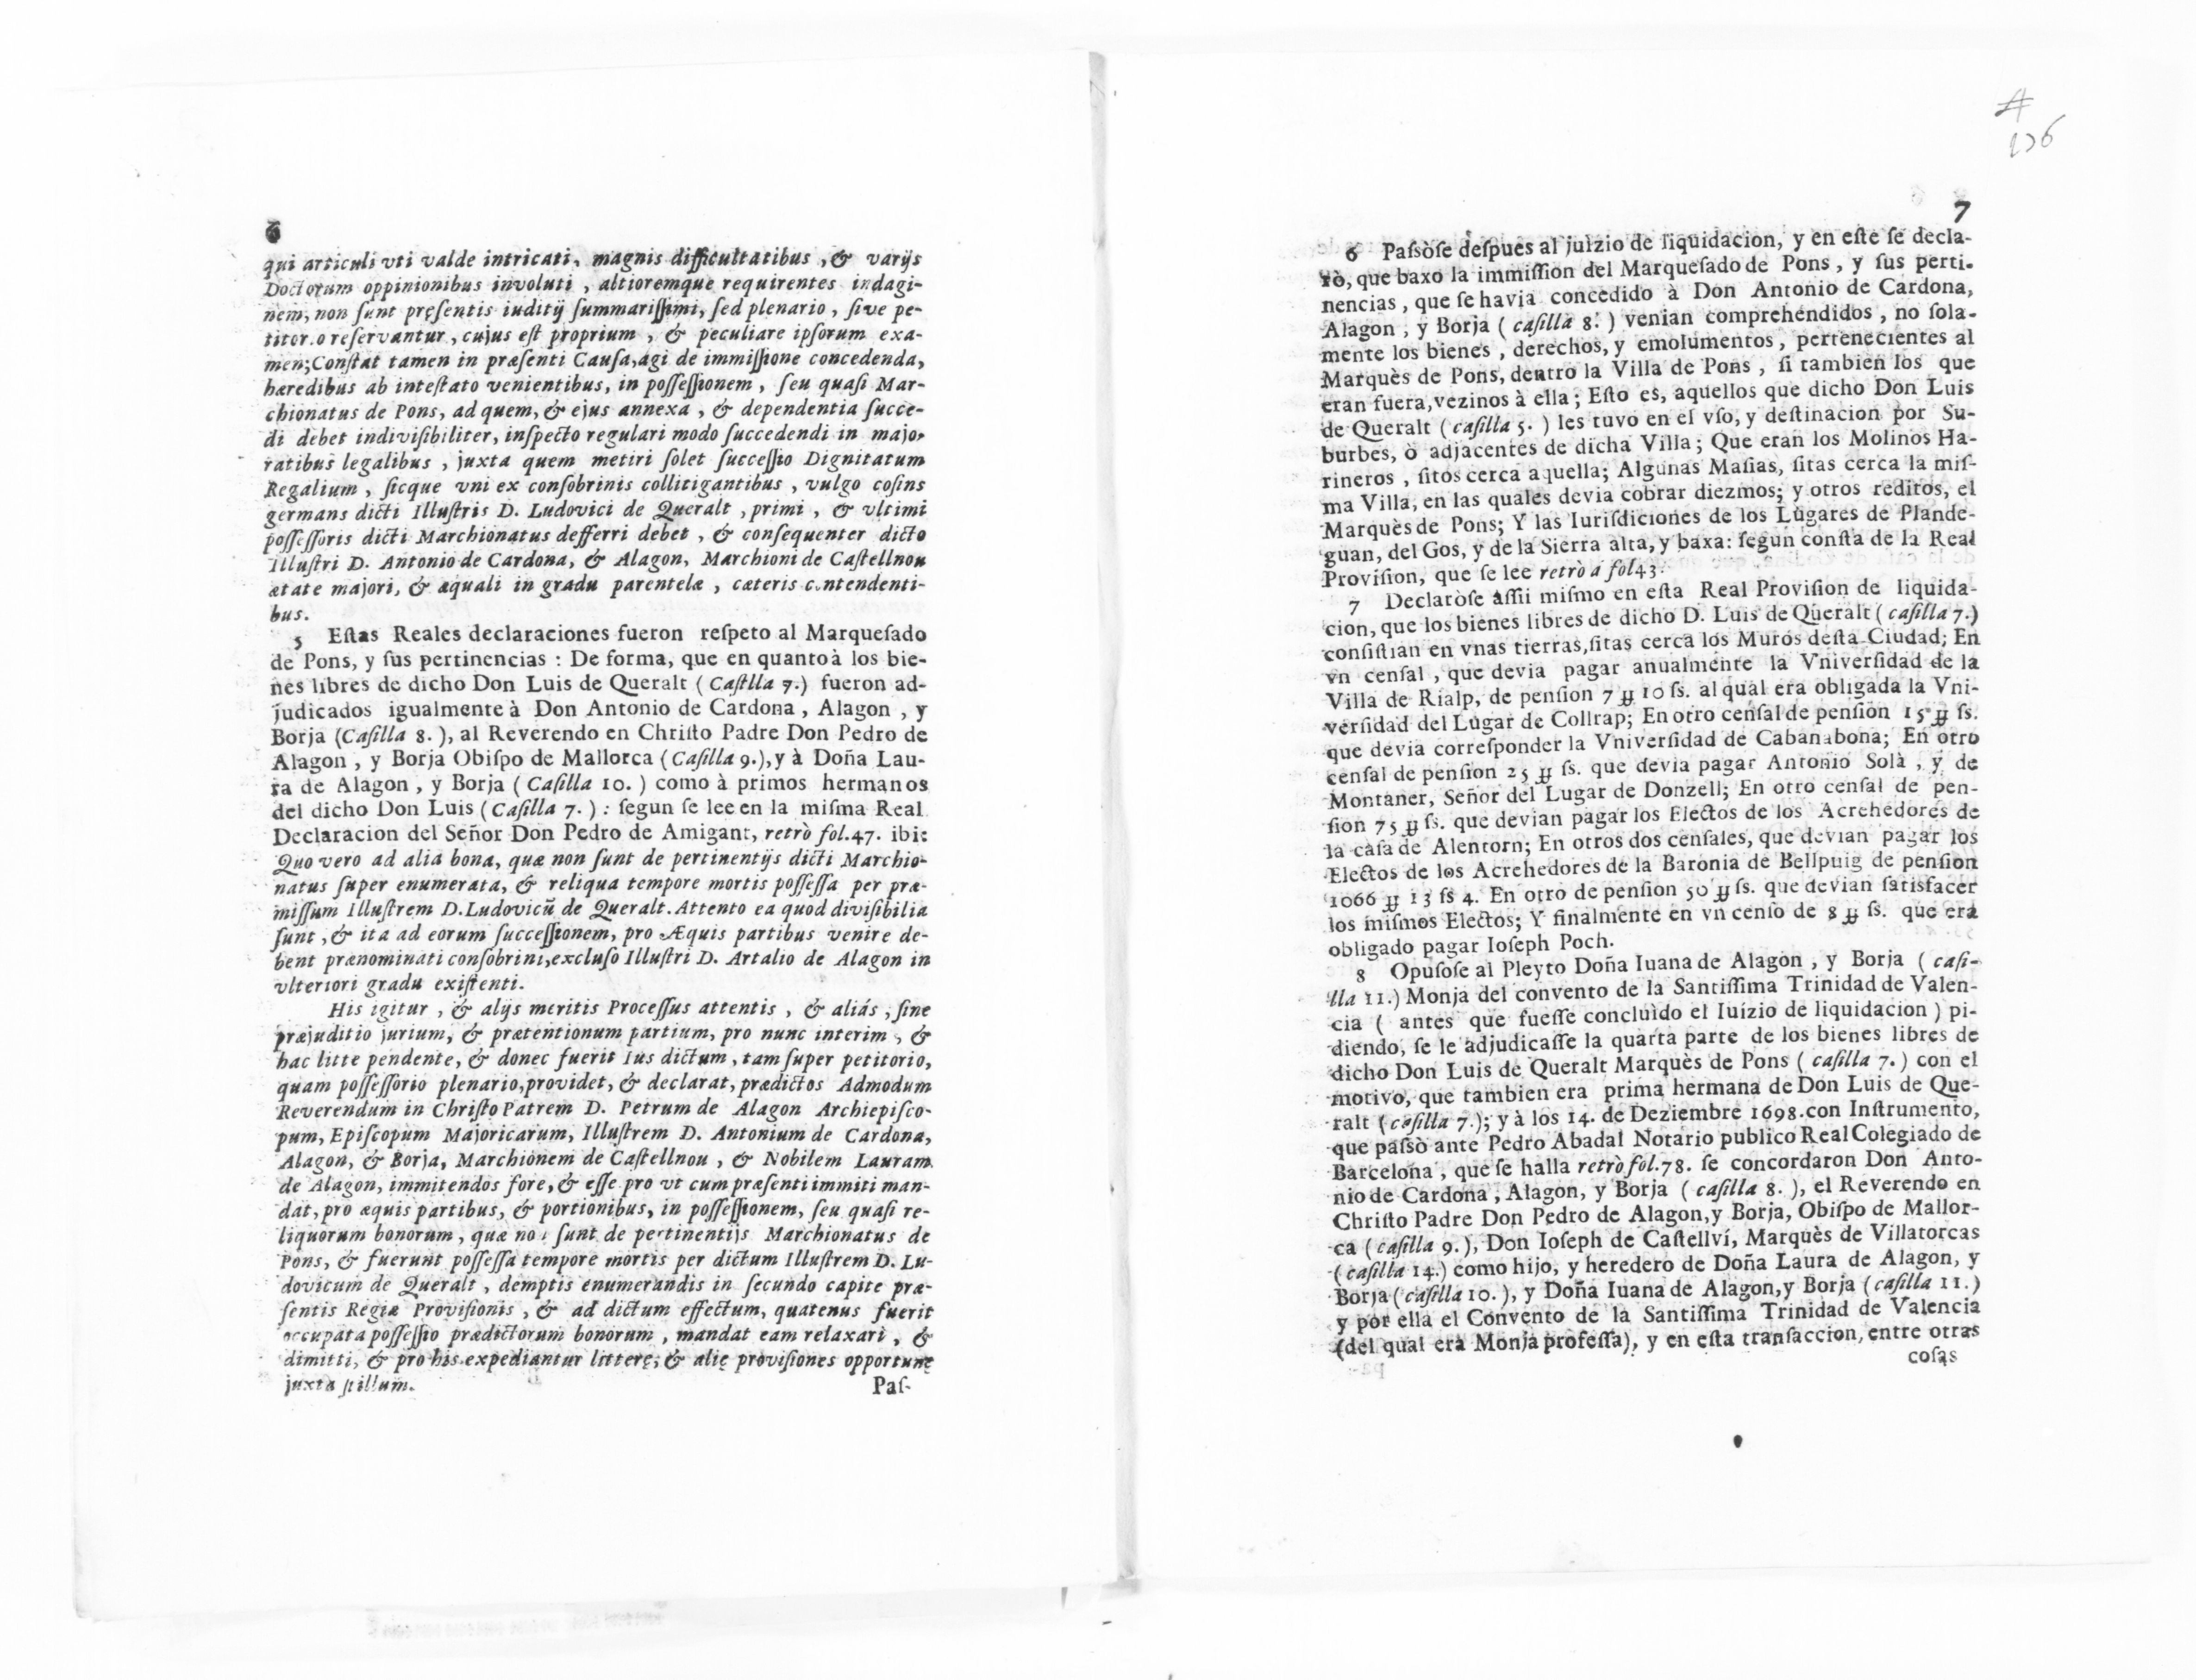 6
qui articuli vti valde intricati, magnis difficultatibus, & varijs
Doctorum oppinionibus involuti, altioremque requirentes indagi-
nem, non sunt pręsentis iuditij summarissimi, sed plenario, sive pe-
titor.o reservantur, cujus est proprium, & peculiare ipsorum exa-
men; Constat tamen in præsenti Causa, agi de immissione concedenda,
hæredibus ab intestato venientibus, in possessionem, seu quasi Mar-
chionatus de Pons, ad quem, & ejus annexa, & dependentia succe-
di debet indivisibiliter, inspecto regulari modo succedendi in majo-
ratibus legalibus, juxta quem metiri solet successio Dignitatum
Regalium, sicque vni ex consobrinis collitigantibus, vulgo cosins
germans dicti Illustris D. Ludovici de Queralt, primi, & vltimi
possessoris dicti Marchionatus defferri debet, & consequenter dicto
Illustri D. Antonio de Cardona, & Alagon, Marchioni de Castellnou
ætate majori, & æquali in gradu parentelæ, cæteris contendenti-
bus.
5 Estas Reales declaraciones fueron respeto al Marquesado
de Pons, y sus pertinencias : De forma, que en quanto à los bie-
nes libres de dicho Don Luis de Queralt ( Castlla 7.) fueron ad-
judicados igualmente à Don Antonio de Cardona, Alagon, y
Borja (Casilla 8. ), al Reverendo en Christo Padre Don Pedro de
Alagon, y Borja Obispo de Mallorca ( Casilla 9.), y à Doña Lau-
ra de Alagon, y Borja ( Casilla 10. ) como à primos hermanos
del dicho Don Luis ( Casilla 7. ) : segun se lee en la misma Real
Declaracion del Señor Don Pedro de Amigant, retrò fol.47. ibi:
Quo vero ad alia bona, quæ non sunt de pertinentijs dicti Marchio-
natus super enumerata, & reliqua tempore mortis possessa per præ-
missum Illustrem D. Ludovicũ de Queralt. Attento ea quod divisibilia
sunt, & ita ad eorum successionem, pro Æquis partibus venire de-
bent prænominati consobrini, excluso Illustri D. Artalio de Alagon in
vlteriori gradu existenti.
His igitur, & alijs meritis Processus attentis, & aliás, sine
præjuditio jurium, & prætentionum partium, pro nunc interim, &
hac litte pendente, & donec fuerit Ius dictum, tam super petitorio,
quam possessorio plenario, providet, & declarat, prædictos Admodum
Reverendum in Christo Patrem D. Petrum de Alagon Archiepisco-
pum, Episcopum Majoricarum, Illustrem D. Antonium de Cardona,
Alagon, & Borja, Marchionem de Castellnou, & Nobilem Lauram
de Alagon, immitendos fore, & esse pro vt cum præsenti immiti man-
dat, pro æquis partibus, & portionibus, in possessionem, seu quasi re-
liquorum bonorum, quæ non sunt de pertinentijs Marchionatus de
Pons, & fuerunt possessa tempore mortis per dictum Illustrem D. Lu-
dovicum de Queralt, demptis enumerandis in secundo capite præ-
sentis Regiæ Provisionis, & ad dictum effectum, quatenus fuerit
occupata possessio prædictorum bonorum, mandat eam relaxari, &
dimitti, & pro his expediantur litterę, & alię provisiones opportunę
juxta stillum.
Pas-
A
136
7
6 Passòse despues al juizio de liquidacion, y en este se decla-
rò, que baxo la immission del Marquesado de Pons, y sus perti-
nencias, que se havia concedido à Don Antonio de Cardona,
Alagon, y Borja ( casilla 8. ) venian comprehendidos, no sola-
mente los bienes, derechos, y emolumentos, pertenecientes al
Marquès de Pons, dentro la Villa de Pons, si tambien los que
eran fuera, vezinos à ella; Esto es, aquellos que dicho Don Luis
de Queralt ( casilla 5. ) les tuvo en el vso, y destinacion por Su-
burbes, ò adjacentes de dicha Villa; Que eran los Molinos Ha-
rineros, sitos cerca aquella; Algunas Masias, sitas cerca la mis-
ma Villa, en las quales devia cobrar diezmos; y otros reditos, el
Marquès de Pons; Y las Iurisdiciones de los Lugares de Plande-
guan, del Gos, y de la Sierra alta, y baxa: segun consta de la Real
Provision, que se lee retrò à fol 43.
7 Declaròse assii mismo en esta Real Provision de liquida-
cion, que los bienes libres de dicho D. Luis de Queralt ( casilla 7.)
consistian en vnas tierras, sitas cerca los Muros desta Ciudad; En
vn censal, que devia pagar anualmente la Vniversidad de la
Villa de Rialp, de pension 7 ℔ 10 ss. al qual era obligada la Vni-
versidad del Lugar de Collrap; En otro censal de pension 15 ℔ ss.
que devia corresponder la Vniversidad de Cabanabona; En otro
censal de pension 25 ℔ ss. que devia pagar Antonio Solà, y de
Montaner, Señor del Lugar de Donzell; En otro censal de pen-
sion 75 ℔ ss. que devian pagar los Electos de los Acrehedores de
la casa de Alentorn; En otros dos censales, que devian pagar los
Electos de los Acrehedores de la Baronia de Bellpuig de pension
1066 ℔ 13 ss 4. En otro de pension 50 ℔ ss. que devian satisfacer
los mismos Electos; Y finalmente en vn censo de 8 ℔ ss. que era
obligado pagar Ioseph Poch.
8 Opusose al Pleyto Doña Iuana de Alagon, y Borja ( casi-
lla 11.) Monja del convento de la Santissima Trinidad de Valen-
cia ( antes que fuesse concluìdo el Iuízio de liquidacion ) pi-
diendo, se le adjudicasse la quarta parte de los bienes libres de
dicho Don Luis de Queralt Marquès de Pons ( casilla 7. ) con el
motivo, que tambien era prima hermana de Don Luis de Que-
ralt ( casilla 7.); y à los 14. de Deziembre 1698. con Instrumento,
que passò ante Pedro Abadal Notario publico Real Colegiado de
Barcelona, que se halla retrò fol.78. se concordaron Don Anto-
nio de Cardona, Alagon, y Borja ( casilla 8. ), el Reverendo en
Christo Padre Don Pedro de Alagon, y Borja, Obispo de Mallor-
ca ( casilla 9. ), Don Ioseph de Castellví, Marquès de Villatorcas
( casilla 14.) como hijo, y heredero de Doña Laura de Alagon, y
Borja ( casilla 10. ), y Doña Iuana de Alagon, y Borja ( casilla 11. )
y por ella el Convento de la Santissima Trinidad de Valencia
(del qual era Monja professa), y en esta transaccion, entre otras
cosas